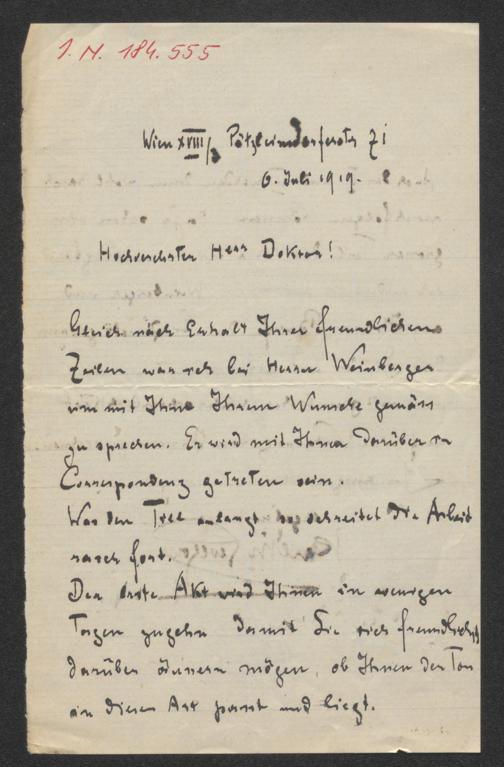 J. N. 184.555
Wien XVIII/3 Pötzleinsdorferstr
6. Juli 1919.
Hochverehrter Herr Doktor!
Gleich nach Erhalt Ihrer freundlichen
Zeilen war ich bei Herrn Weinberger
um mit Ihm Ihrem Wunsche gemäss
zu sprechen. Er wird mit Ihnen darüber in
Correspondenz getreten sein.
Was den Text anlangt so schreitet die Arbeit
rasch fort.
Der erste Akt wird Ihnen in wenigen
Tagen zugehn damit Sie sich freundlichst
darüber äussern mögen, ob Ihnen der Ton
in dieser Art passt und liegt.